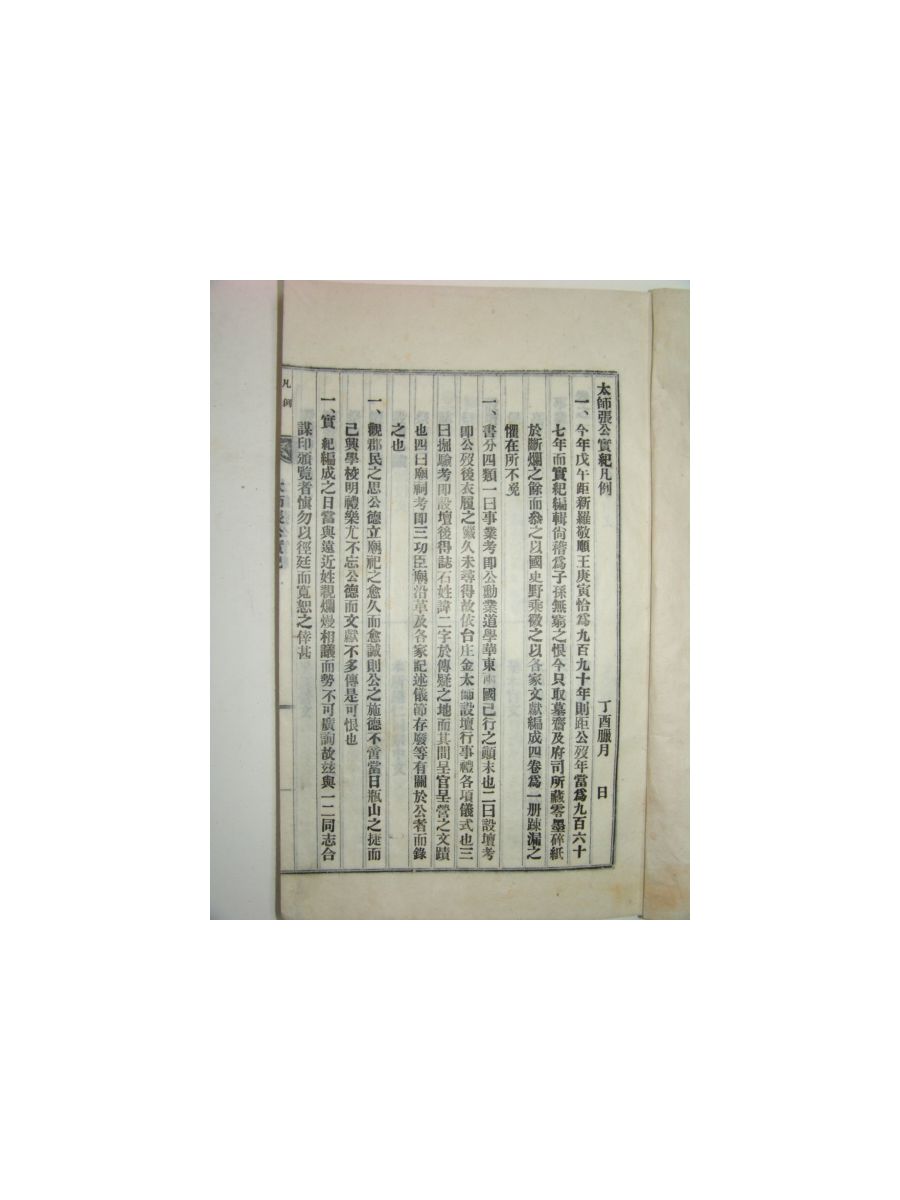 太師張公實紀凡例　丁酉臘月　日
一、今年戊午距新羅敬順王庚寅恰爲九百九十年則距公歿年當爲九百六十
七年而實紀編輯尙稽爲子孫無窮之恨今只取墓齋及府司所藏零墨碎紙
於斷爛之餘而叅之以國史野乘徵之以各家文獻編成四卷爲一册踈漏之
懼在所不免
一、書分四類一曰事業考卽公勳業道學華東兩國已行之顚末也二曰設壇考
卽公歿後衣履之藏久未尋得故依台庄金太師設壇行事禮各項儀式也三
曰掘驗考卽設壇後得誌石姓諱二字於傳疑之地而其間呈官呈營之文蹟
也四曰廟祠考卽三功臣廟沿革及各家記述儀節存廢等有關於公者而錄
之也
一、觀郡民之思公德立廟祀之愈久而愈誠則公之施德不啻當日瓶山之捷而
已興學校明禮樂尤不忘公德而文獻不多傳是可恨也
一、實紀編成之日當與遠近姓親爛熳相議而勢不可廣詢故玆與一二同志合
謀印頒覽者愼勿以徑廷而寬恕之倖甚
凡例
太師張公實紀